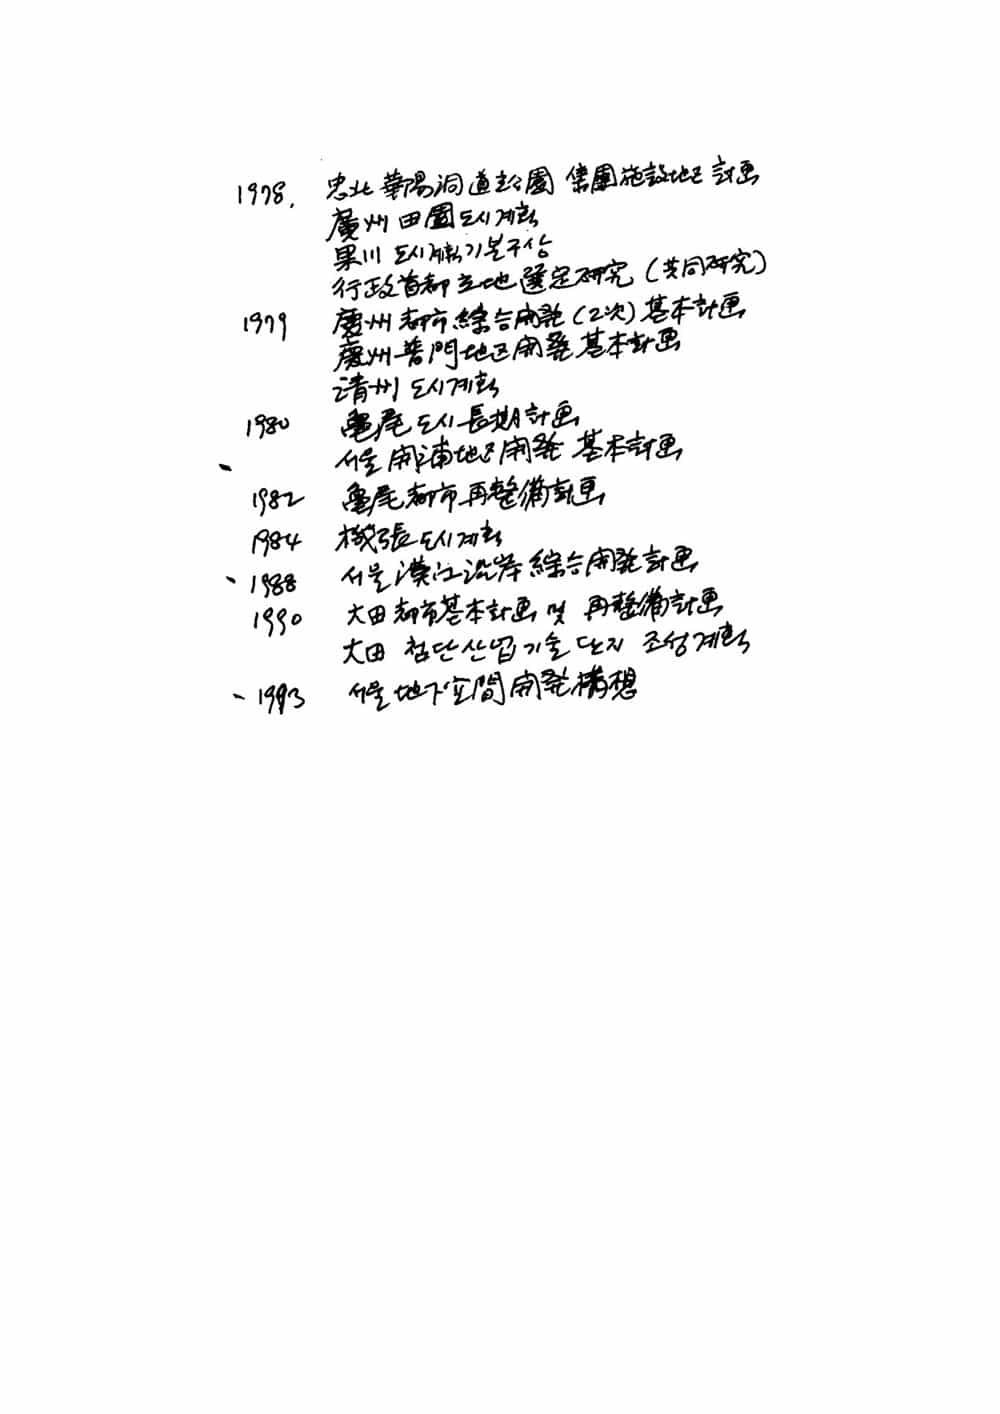 1978. 忠北 華陽洞 道立公園 集團施設地区 計画
廣州 田園 도시계획
果川 도시계획기본구상
行政首都 立地 選定研究 (共同研究)
1979 慶州 都市 綜合開発 (2次) 基本計画
慶州 普門地区 開発 基本計画
清州 도시계획
1980 亀尾 도시 長期計画
서울 開浦地区 開発 基本計画
1982 亀尾 都市 再整備計画
1984 機張 도시계획
1988 서울 漢江沿岸 綜合開発計画
1990 大田 都市基本計画 및 再整備計画
大田 첨단산업기술단지 조성계획
1993 서울 地下空間 開発構想